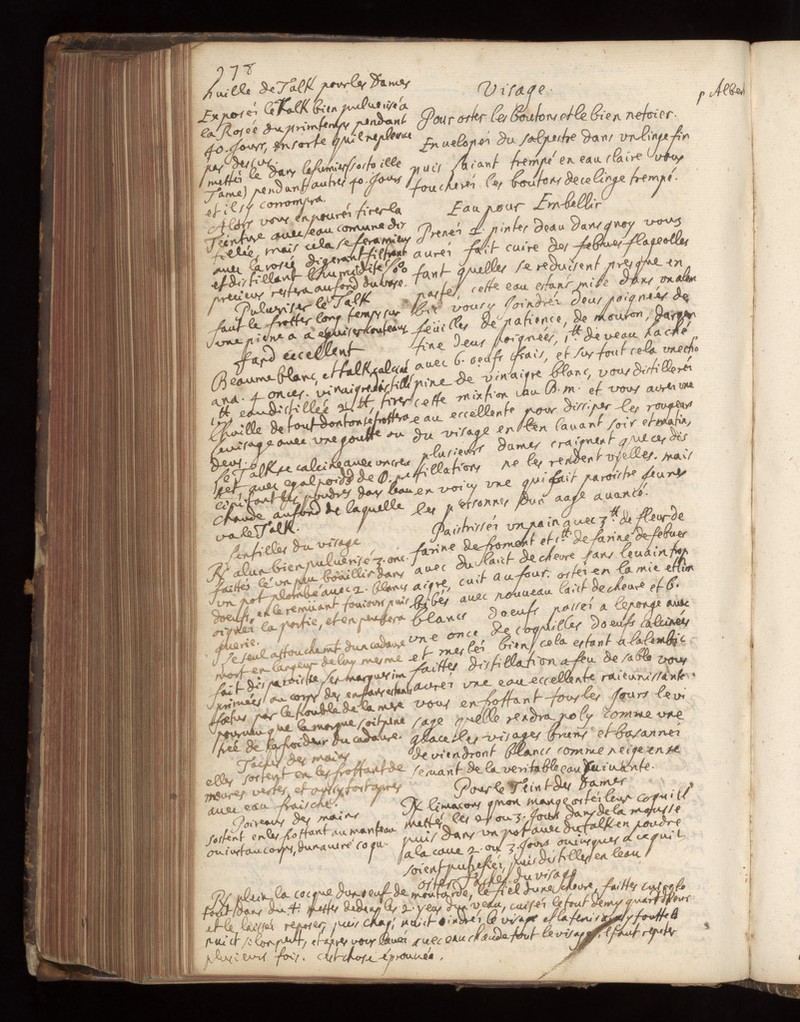 278
huille de Talk pour les Dames
Exposés le Talk bien pulverisé a
la Rosée du printemps pendant
40. Jours, en sorte qu'il ne pleuve
pas dessus.
mettés le dans le fumier
pendant autres 40. Jours
et il s'y corrompra.
Alors vous en pourés tirer la
Teinture avec eau comune dis
tillée, mais cela se fera mieux
avec la rosée digerant filtrant
et distillant l'humidité
precieux restera au fond du vase.
Pulveriser le Talk
faut le frotter long temps sur
une piere a eguiser couteaux
fard excellent
Beaume blanc, et talk calciné
ana. 4 onces. vinaigre distillé
eau distillée tirer
l'huille de tout dont on se frottera
le visage avec une goutte ou
deus.
Le Talk se calcine avec
avec egal poids de
poudres dans l'eau
chaude au fond de laquelle
va le Talk.
Lentilles du visage
℞ alun bien pulverisé 3. onc.
faittes le un peu boüillir dans
un pot plombé avec 2. blancs
d'oeufs, en le remuant tousiours puis
oignés la partie, et en peu sera
guerie.
Le seul attouchement d'un cadavre
mort en largeur de luy mesme
fait disparoistre les marques im
primées au corps des enfans estant
foetus par le trouble de la mere
pourveu que la marque soit
de la froideur du cadavre.
Taches des mains
elles sortent en les frottant de
meures vertes, et apres
avec eau fraische.
Poireaus des mains
sortent en les frottant au manteau
ou iust au corps, d'un autre cocu.
Visage.
p Albert
Pour oster les boutons et le bien netoier.
Envelopés du salpestre dans un linge fin
puis l'aiant trempé en eau claire vous
toucherés les boutons de ce linge trempé.
Eau pour Embellir
Prenés 2. pintes d'eau dans quoy vous
aurés fait cuire des febves flageolles
tant quelles se reduisent presque en
paste, cette eau estant mise dans un alem
bic vous y joindrés deus poignées de
feüilles de patience, de mouron, d'argen
tine deus poignées, 1 ℔ de veau haché
avec 6. oeufs frais, et sur tout cela une cho
pine de vinaigre blanc, vous distillerés
cette mixtion au B. m. et vous aurés une
eau excellente pour dissiper les rougeurs
du visage en l'en lavant soir et matin,
plusieurs dames craignent que ces dis
tillations ne les rendent vielles. mais
en voicy une qui fait paroistre jeunes
les personnes d'un aage avancé.
Paistrissés un pain avec 3 ℔ de fleur de
farine de froment et 1 ℔ de farine de febves
avec du lait de chevre sans levain trop
aigre, cuit au four. ostés en la mie
avec nouveau lait de chevre et 6.
blancs d'oeufs passés a l'eponge avec
une once, de coquilles d'oeufs calcinées
et meslés bien, cela estant a l'alembic
faittes distillation a feu de sable vous
aurés une eau excellente raieunissante.
vous en frottant tous les jours le vi
sage quelle rendra poly comme une
glace les visages bruns et basannés
deviendront blancs comme neige en se
servant de la veritable eau suivante.
Pour le Teint des Dames
℞ limaçons qu'on mange ostés leur coquille
mettés les 2 ou 3. jours dans de la mousse
puis dans un pot avec du talk en poudre
a la cave 2. ou 3. jours ou iusques a ce quil
soient putrefiés, puis distillés en l'eau
oster Taches du visage
℞ plein la cocque d'un oeuf de moutarde, le fiel d'une chevre, faittes cuire
tout dans du mettés dedans les 2. yeus d'un veau, cuisés le tout demy quart d'heure
et le laissés reposer, puis chaq; nuict oindrés le visage
nuict si long peut, et apres vous lavés avec eau chaude tout le visage. il faut repeter
plusieurs fois. c'est chose éprouvée.